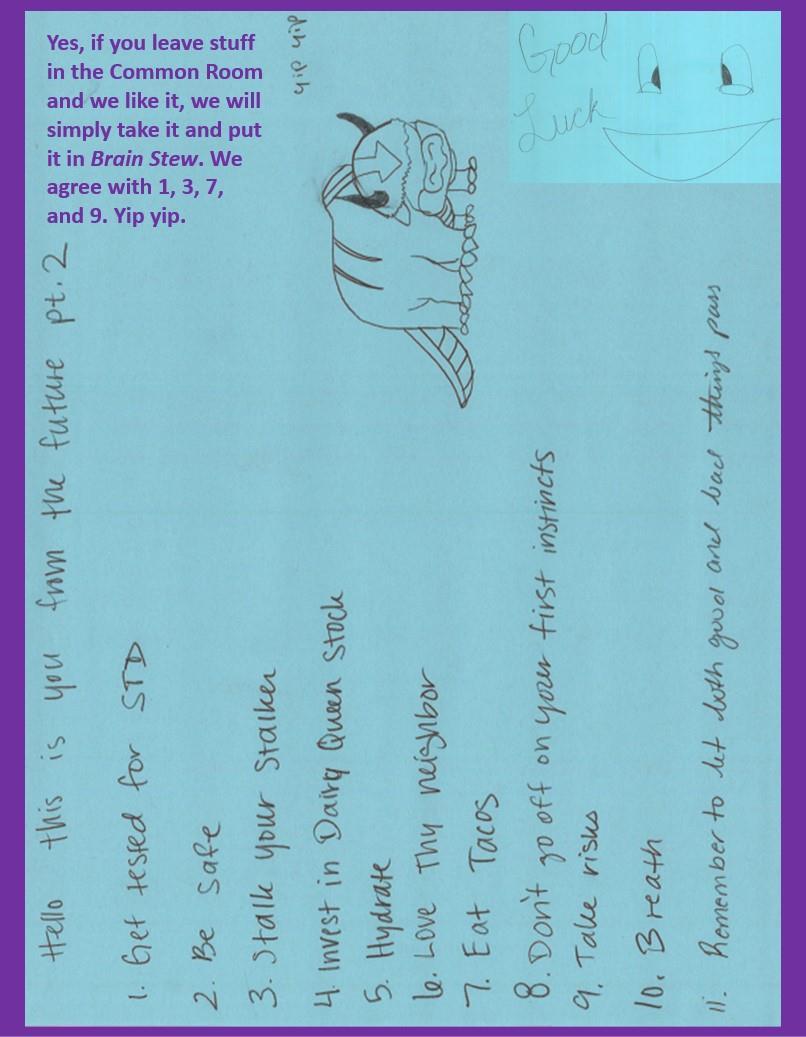 Yes, if you leave stuff
in the Common Room
and we like it, we will
simply take it and put
it in Brain Stew. We
agree with 1, 3, 7,
and 9. Yip yip.
yip yip
Good
Luck
Hello this is you from the future pt. 2
1. Get tested for STD
2. Be Safe
3. Stalk your Stalker
4. Invest in Dairy Queen Stock
5. Hydrate
6. Love Thy neighbor
7. Eat Tacos
8. Don't go off on your first instincts
9. Take risks
10. Breath
11. Remember to let both good and bad things pass